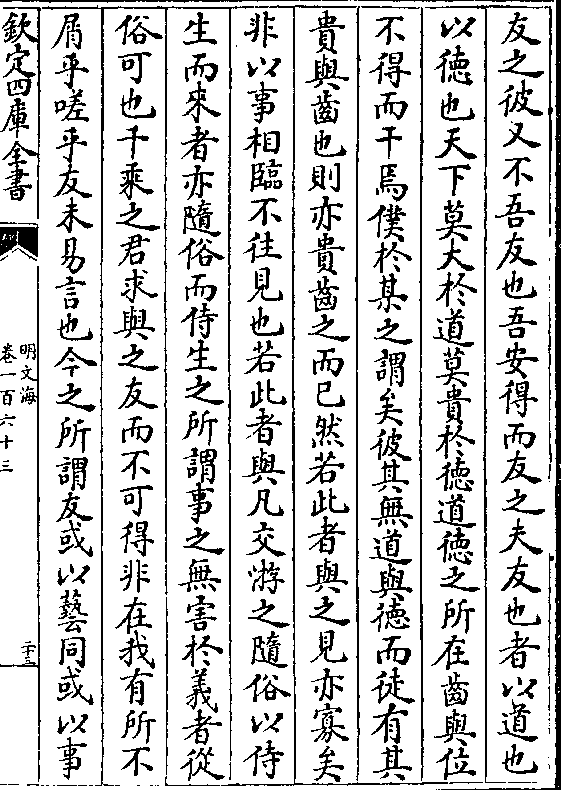 友之彼又不吾友也吾安得而友之夫友也者以道也
以德也天下莫大於道莫貴於德道德之所在齒與位
不得而干焉僕於某之謂矣彼其無道與德而徒有其
貴與齒也則亦貴齒之而已然若此者與之見亦寡矣
非以事相臨不往見也若此者與凡交游之隨俗以侍
生而來者亦隨俗而侍生之所謂事之無害於義者從
俗可也千乘之君求與之友而不可得非在我有所不
屑乎嗟乎友未易言也今之所謂友或以藝同或以事
欽定四庫全書
明文海
卷一百六十三
二十三